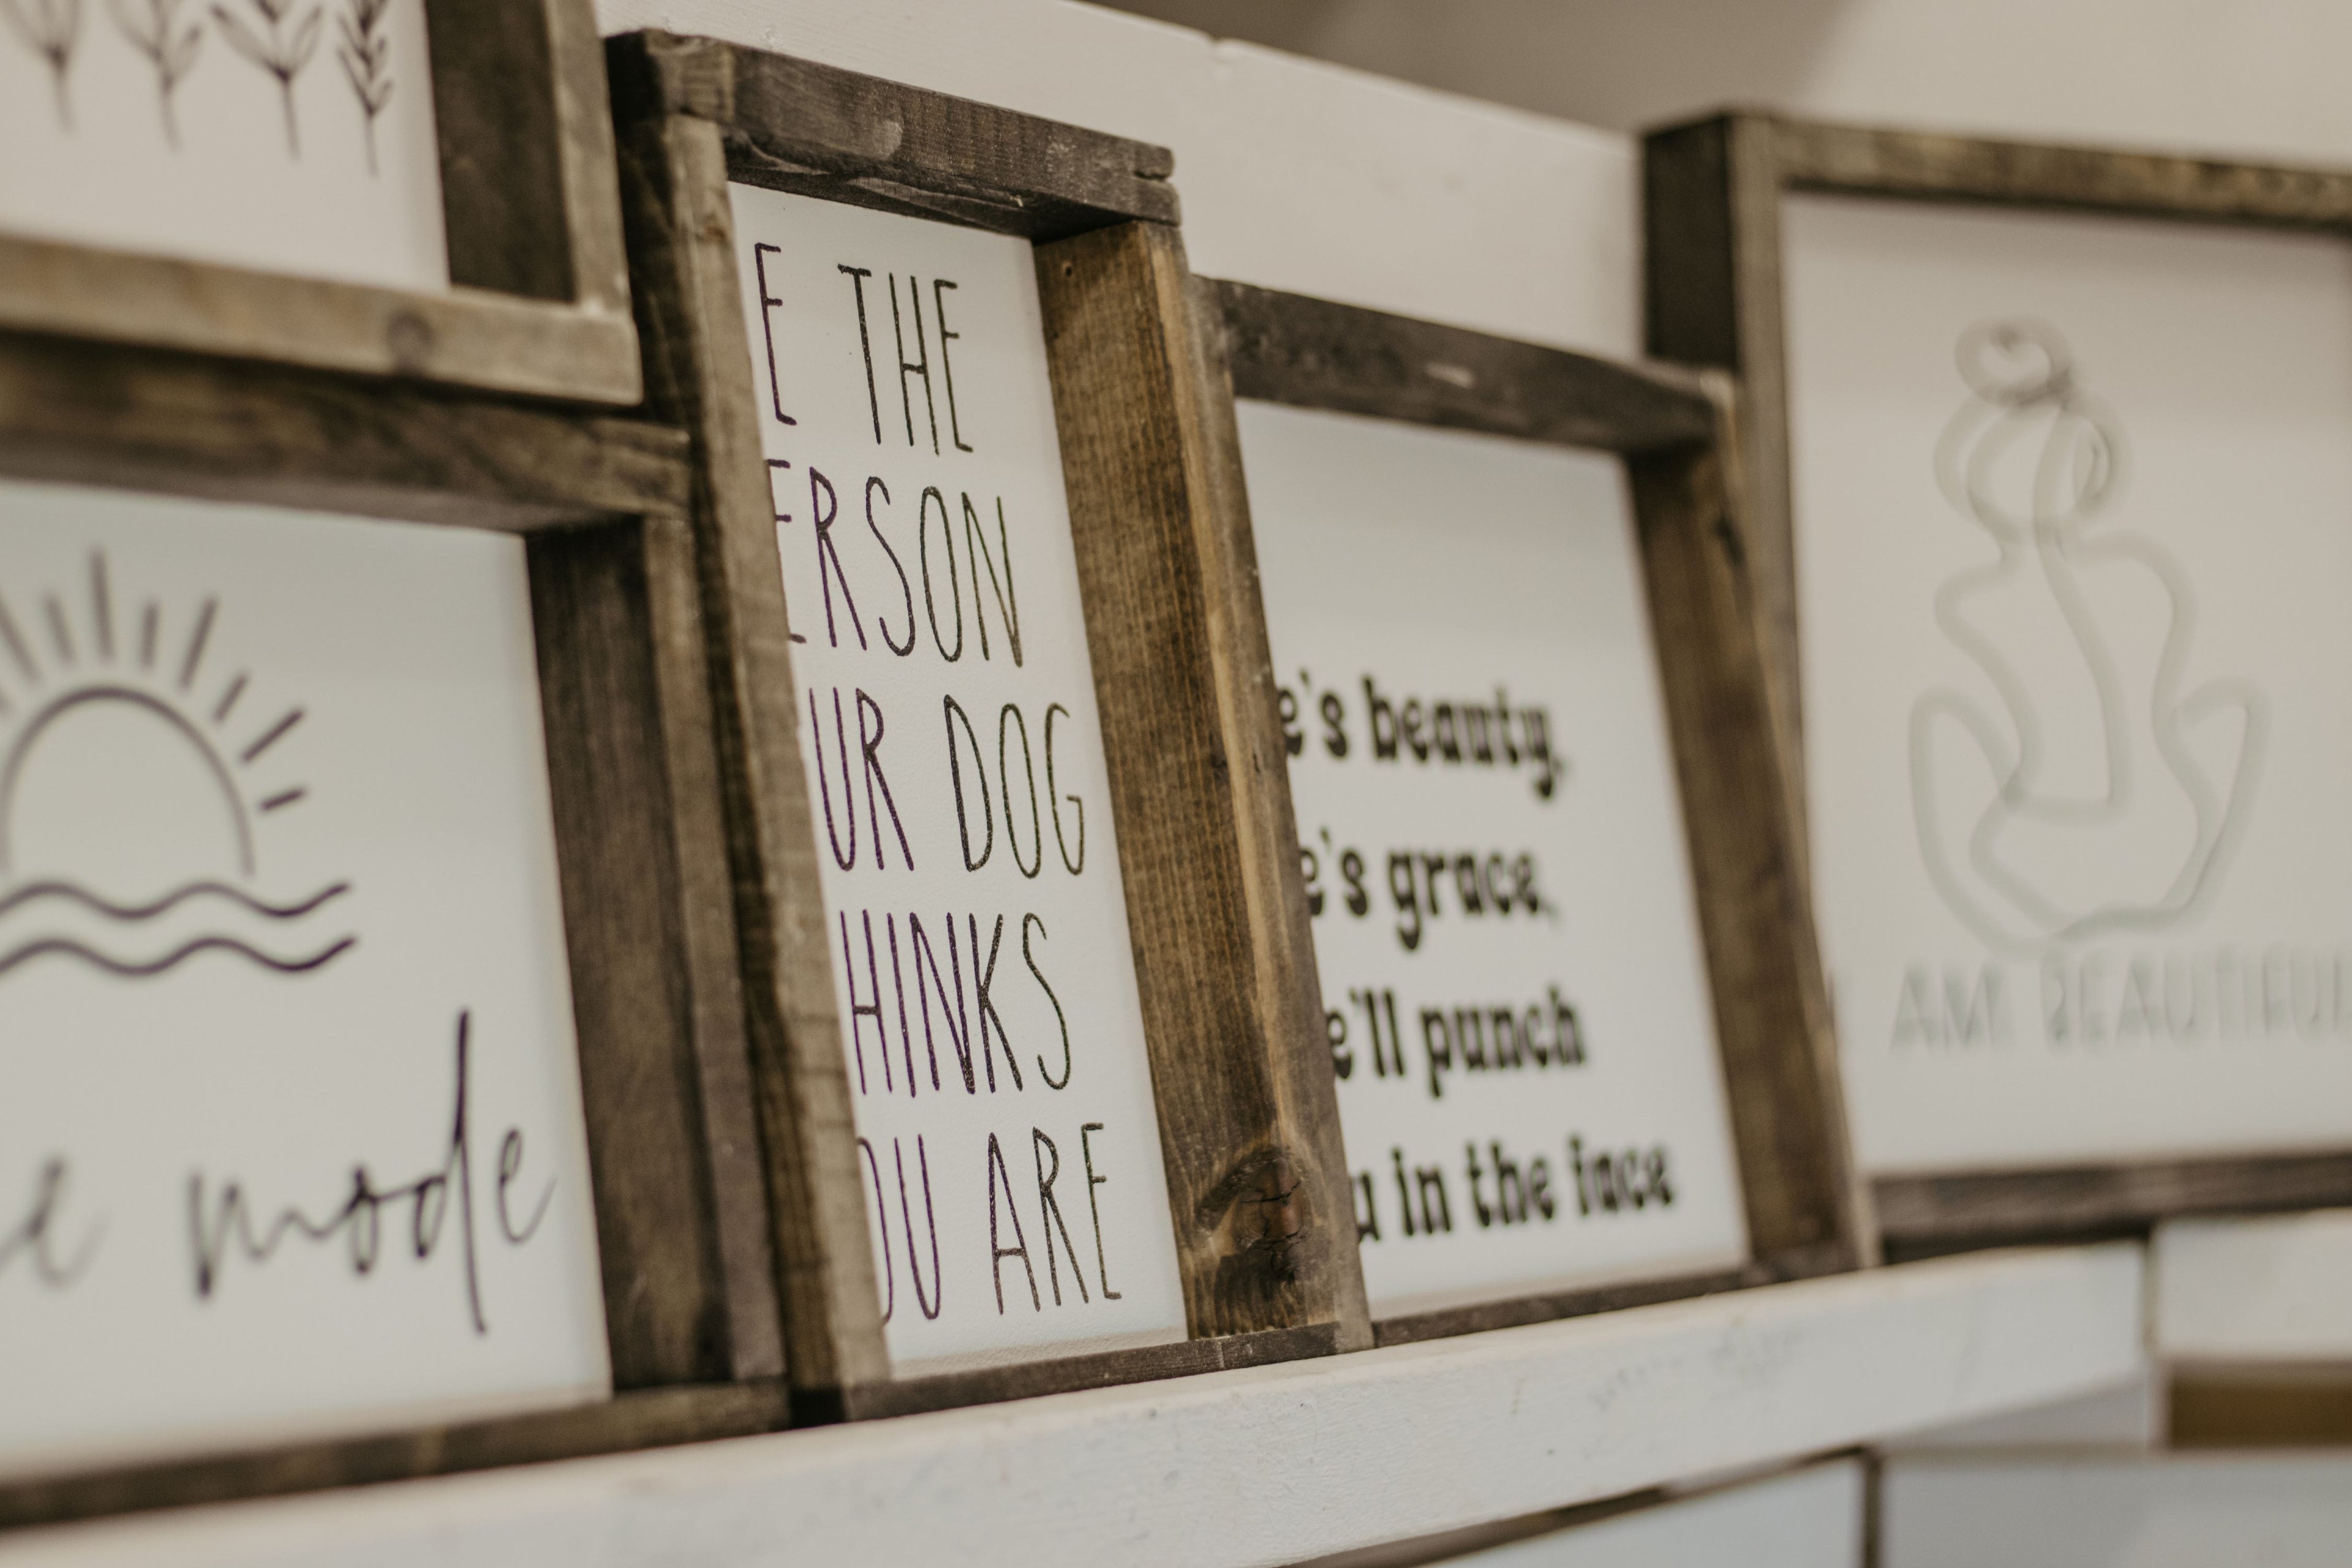 e mode
E THE
ERSON
UR DOG
HINKS
OU ARE
e's beauty,
e's grace,
e'll punch
u in the face
AM BEAUTIFUL